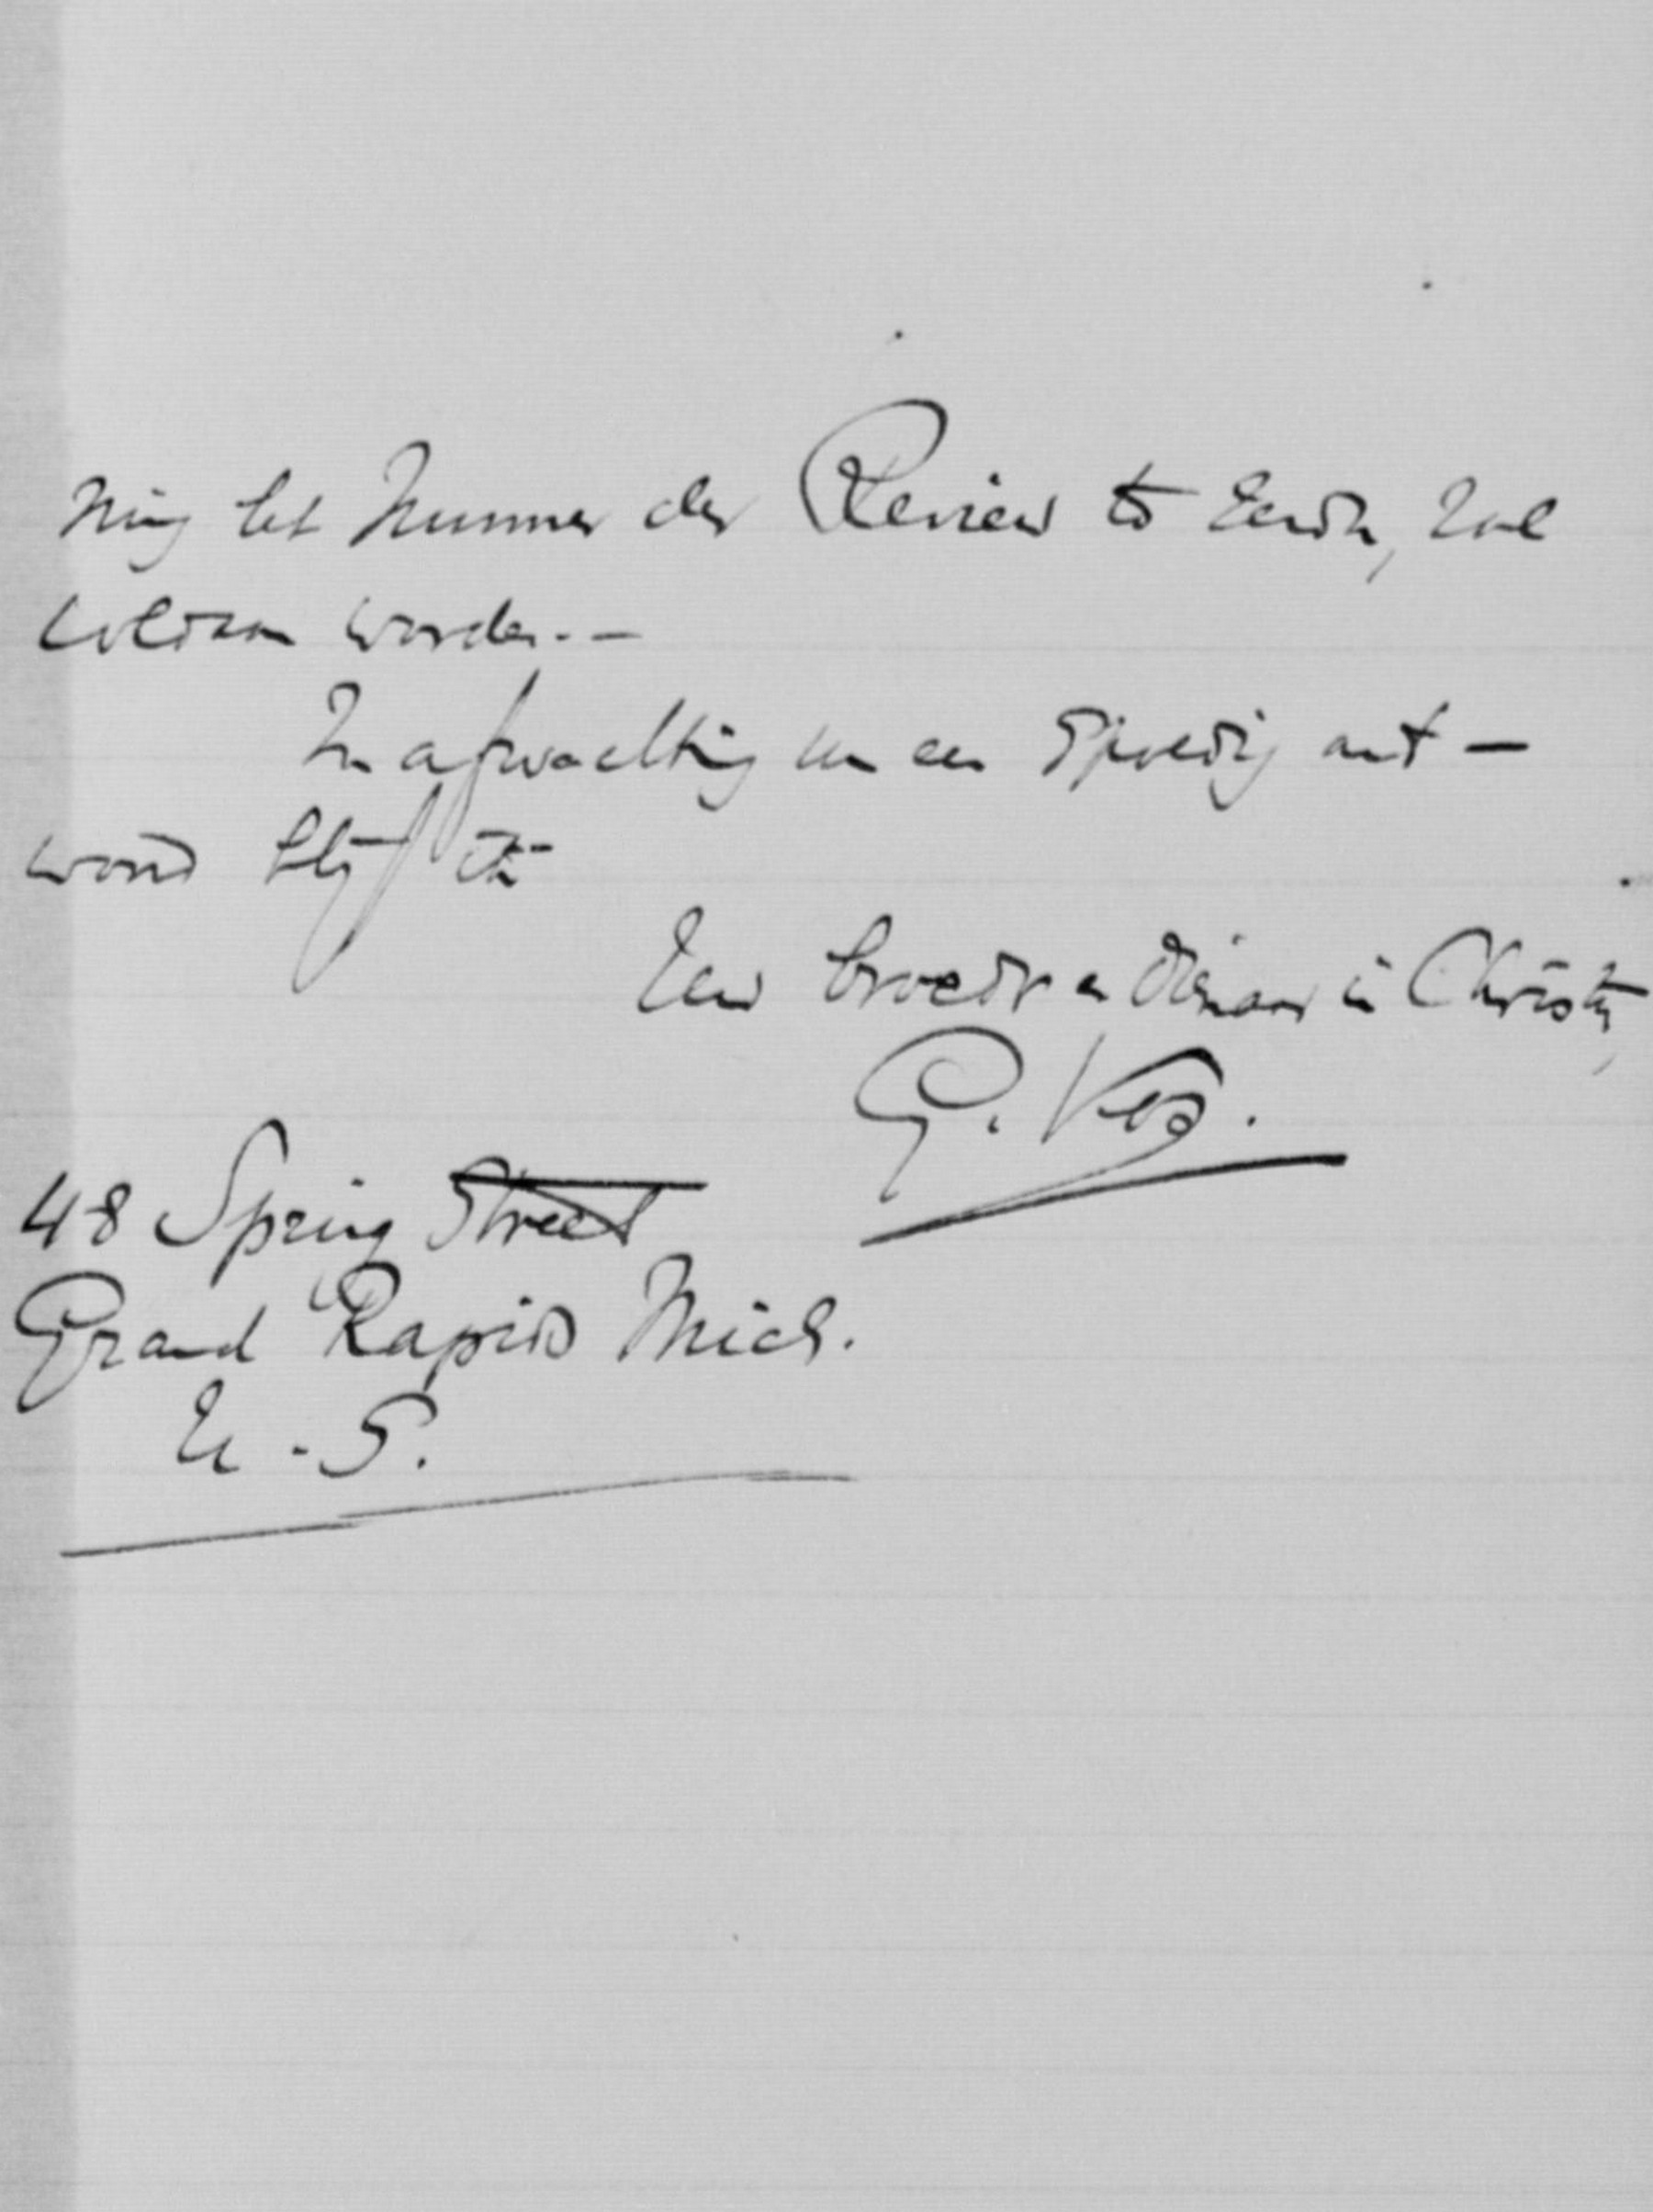 ning het Nummer der Review te zenden, zal
voldaan worden. —
In afwachting van een spoedig ant-
woord blijf ik
Uw broeder en dienaar in Christus,
G. Vos.
48 Spring Street
Grand Rapids Mich.
U. S.